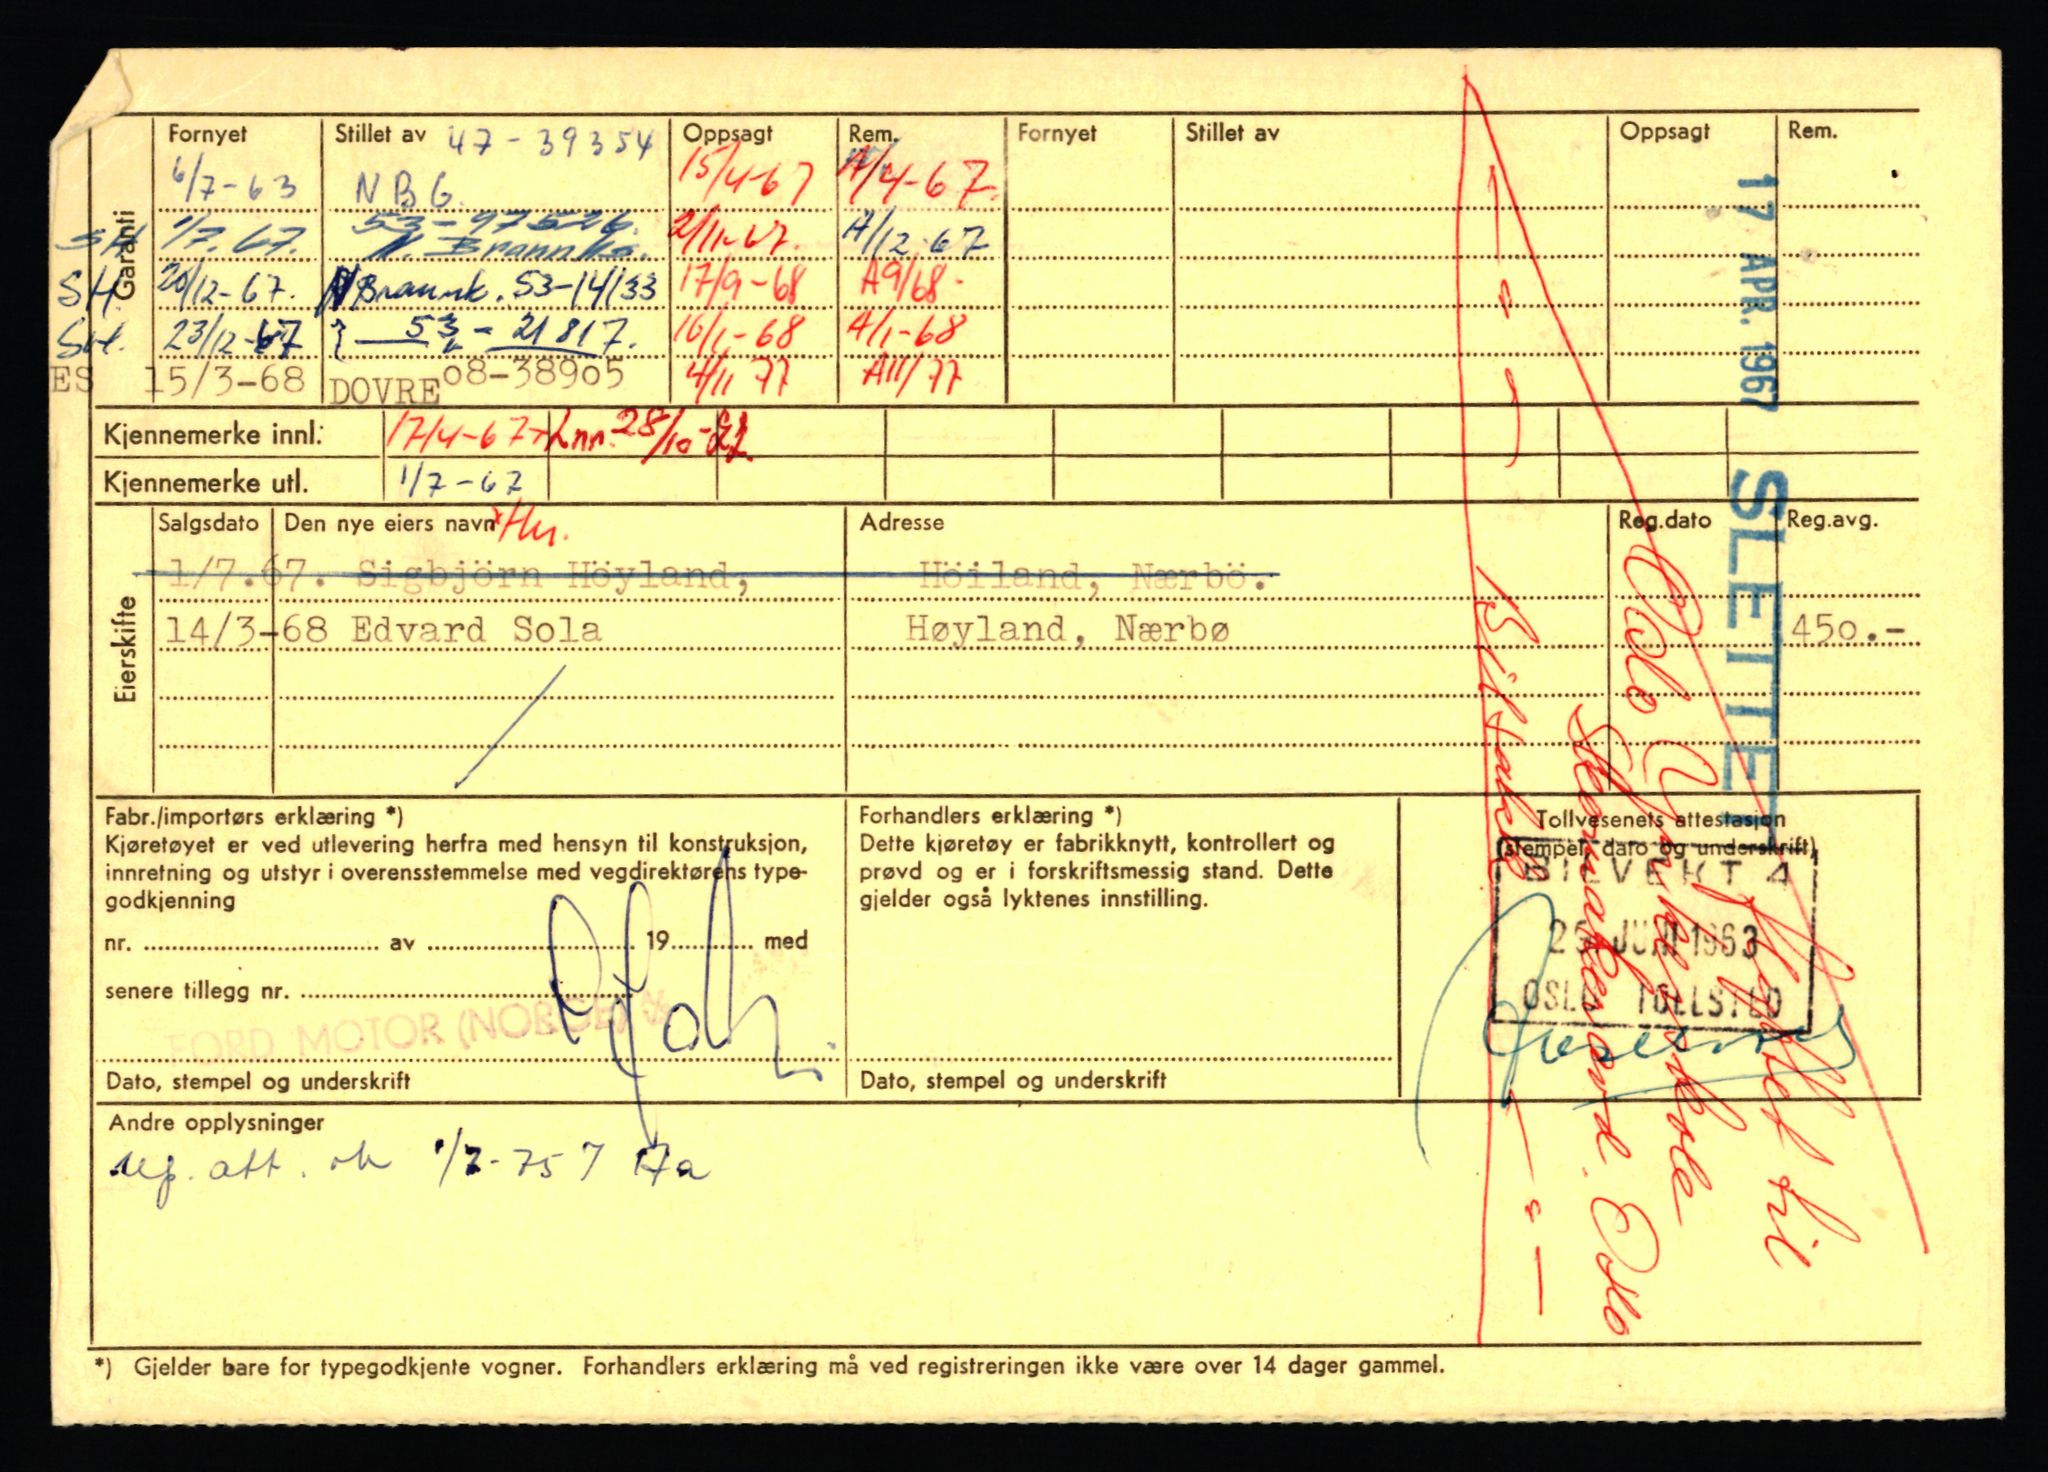 Fornyet Stillet av 47-39354 Oppsagt Rem. Fornyet Stillet av Oppsagt Rem.
Garanti
6/7-63 NBG. 15/4-67 A/4-67.
SH 1/7.67. 53-97526. N. Brannks. 2/11-67. A/12-67
SH. 20/12-67. N Brannk. 53-14133 17/9-68 A9/68-
23/12-67 } 53 - 21817. 16/1-68 A/1-68
ES 15/3-68 DOVRE 08-38905 4/11 77 A11/77
Kjennemerke innl: 17/4-67 Inn. 28/10-
Kjennemerke utl. 1/7-67
Eierskifte
Salgsdato Den nye eiers navn Adresse Reg.dato Reg.avg.
1/7.67. Sigbjörn Höyland, Höiland, Nærbö.
14/3-68 Edvard Sola Høyland, Nærbø 450.-
17 APR. 1967 SLETTET
Flyttet til
Oslo Yrkesskole
Stenersgt
Bilsakk
Oslo
Fabr./importørs erklæring *)
Kjøretøyet er ved utlevering herfra med hensyn til konstruksjon,
innretning og utstyr i overensstemmelse med vegdirektørens type-
godkjenning
nr. av 19 med
senere tillegg nr.
FORD MOTOR (NORGE) A/S
Dato, stempel og underskrift
Forhandlers erklæring *)
Dette kjøretøy er fabrikknytt, kontrollert og
prøvd og er i forskriftsmessig stand. Dette
gjelder også lyktenes innstilling.
Dato, stempel og underskrift
Tollvesenets attestasjon
(stempel, dato og underskrift)
BILVEKT 4
25 JUNI 1963
OSLO TOLLSTED
Andre opplysninger
reg. att. ok 1/7-75
*) Gjelder bare for typegodkjente vogner. Forhandlers erklæring må ved registreringen ikke være over 14 dager gammel.